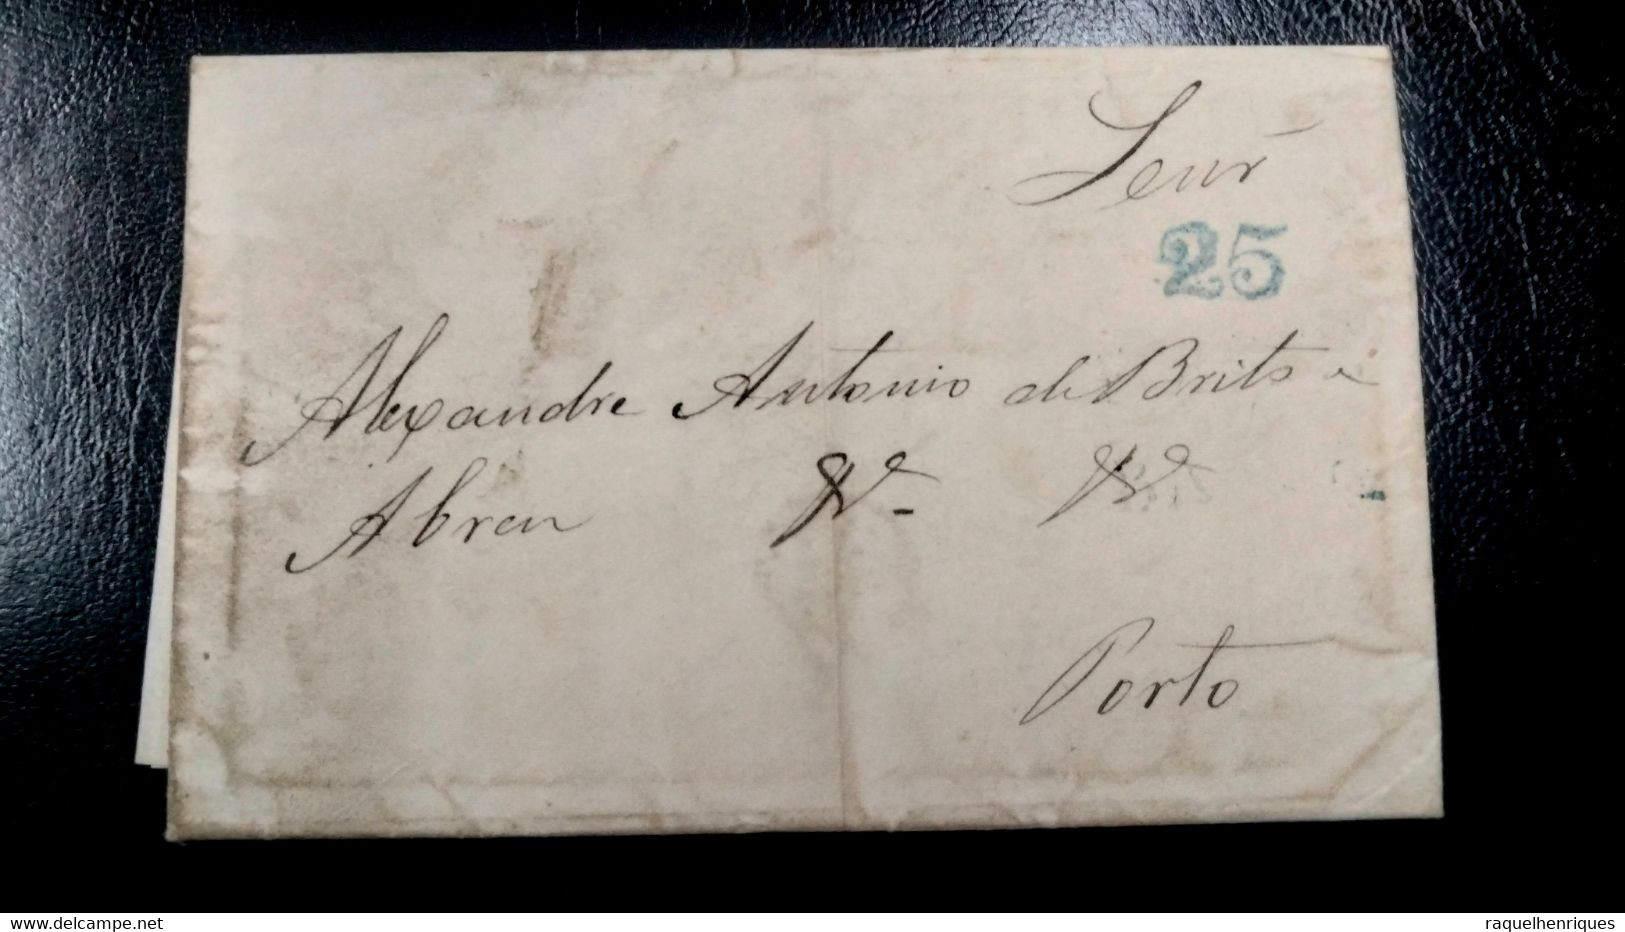 Senr
25
Alexandre Antonio de Brito e
Abreu &a &a
Porto
delcampe.net
raquelhenriques